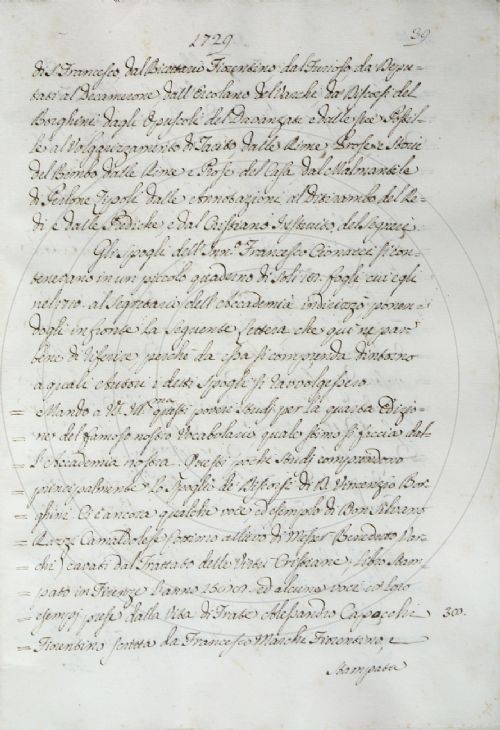 1729
39
di S. Francesco dal Birettario Fiorentino dal Furioso da Depu-
tati al Decamerone dall'Ercolano del Varchi da Discorsi del
Borghini dagli Opuscoli del Davanzati e dalle sue Postil-
le al Volgarizzamento di Tacito dalle Rime, Prose e Storie
del Bembo dalle Rime e Prose del Casa dal Malmantile
di Perlone Zipoli dalle Annotazioni al Ditirambo del Re-
di e dalle Prediche e dal Cristiano Instruito del Segneri
Gli spogli dell' Francesco Cionacci si con-
tenevano in un piccolo quaderno di soli fogli cui egli
al Segretario dell'Accademia indirizzò ponen-
dogli in fronte la seguente Lettera che qui ne par
bene di riferire perchè da essa si comprenda dintorno
a quali Autori i detti Spogli si ravvolgessero
= Mando a V. S. questi poveri Studj per la quarta Edizio-
= ne del famoso nostro Vocabolario quale si faccia dal-
= l'Accademia nostra. Questi pochi Studj comprendono
= principalmente lo Spoglio de Discorsi di D. Vincenzio Bor-
= ghini. Ci è ancora qualche voce ed esempio di Don Silvano
= Razzi Camaldolese (ottimo allievo di Messer Benedetto Var-
= chi) cavati dal Trattato delle Virtù Cristiane, Libro Stam-
= pato in Firenze l'anno ed alcune voci co loro
= esempj prese dalla Vita di Frate Alessandro Capocchi 300.
= Fiorentino scritta da Francesco Marchi Fiorentino, e
Stampata